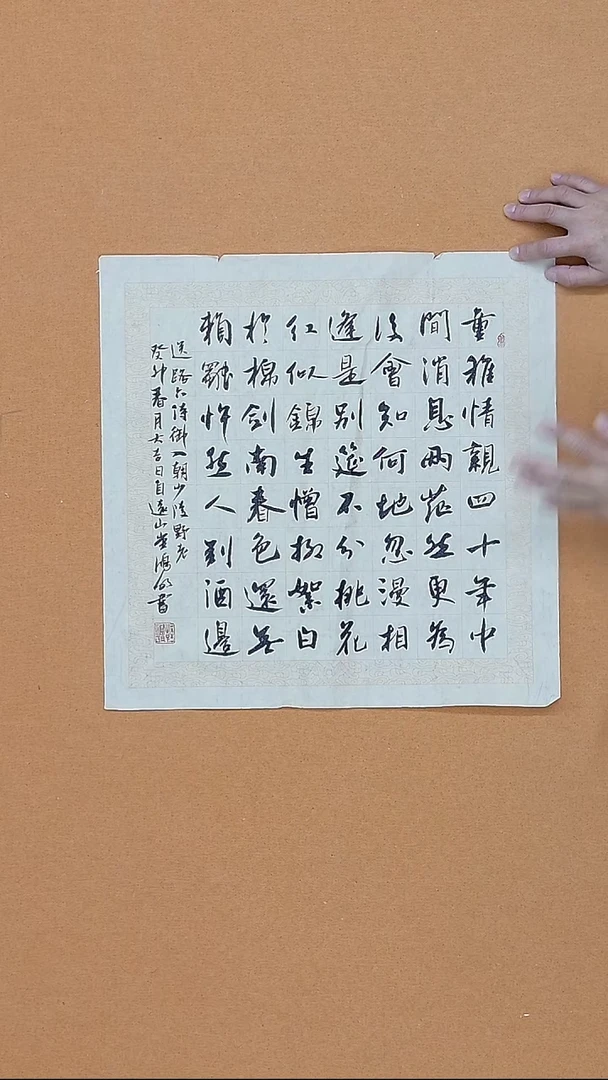 童稚情親四十年中
間消息兩茫然更為
後會知何地忽漫相
逢是別筵不分桃花
紅似錦生憎柳絮白
於棉劍南春色還無
賴觸忤愁人到酒邊
送路六侍御入朝少陵野老
癸卯春月大吉日自遠山書